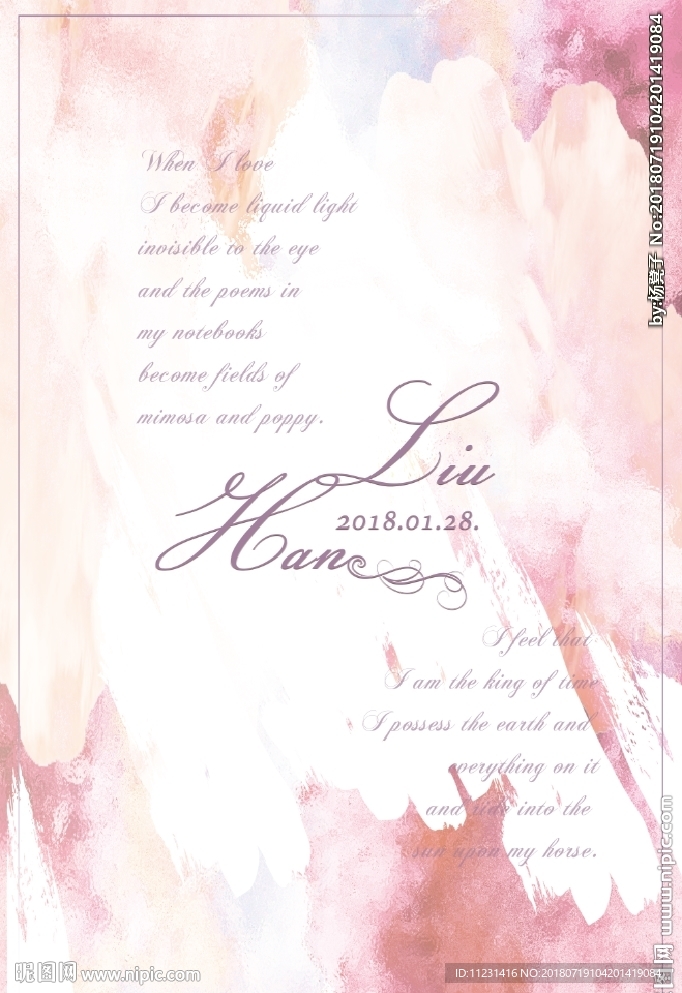 When I love
I become liquid light
invisible to the eye
and the poems in
my notebooks
become fields of
mimosa and poppy.
Liu
2018.01.28.
Han
I feel that
I am the king of time
I possess the earth and
everything on it
and ride into the
sun upon my horse.
by:杨蓂子 No:20180719104201419084
www.nipic.com
昵图网
昵图网 www.nipic.com
ID:11231416 NO:20180719104201419084